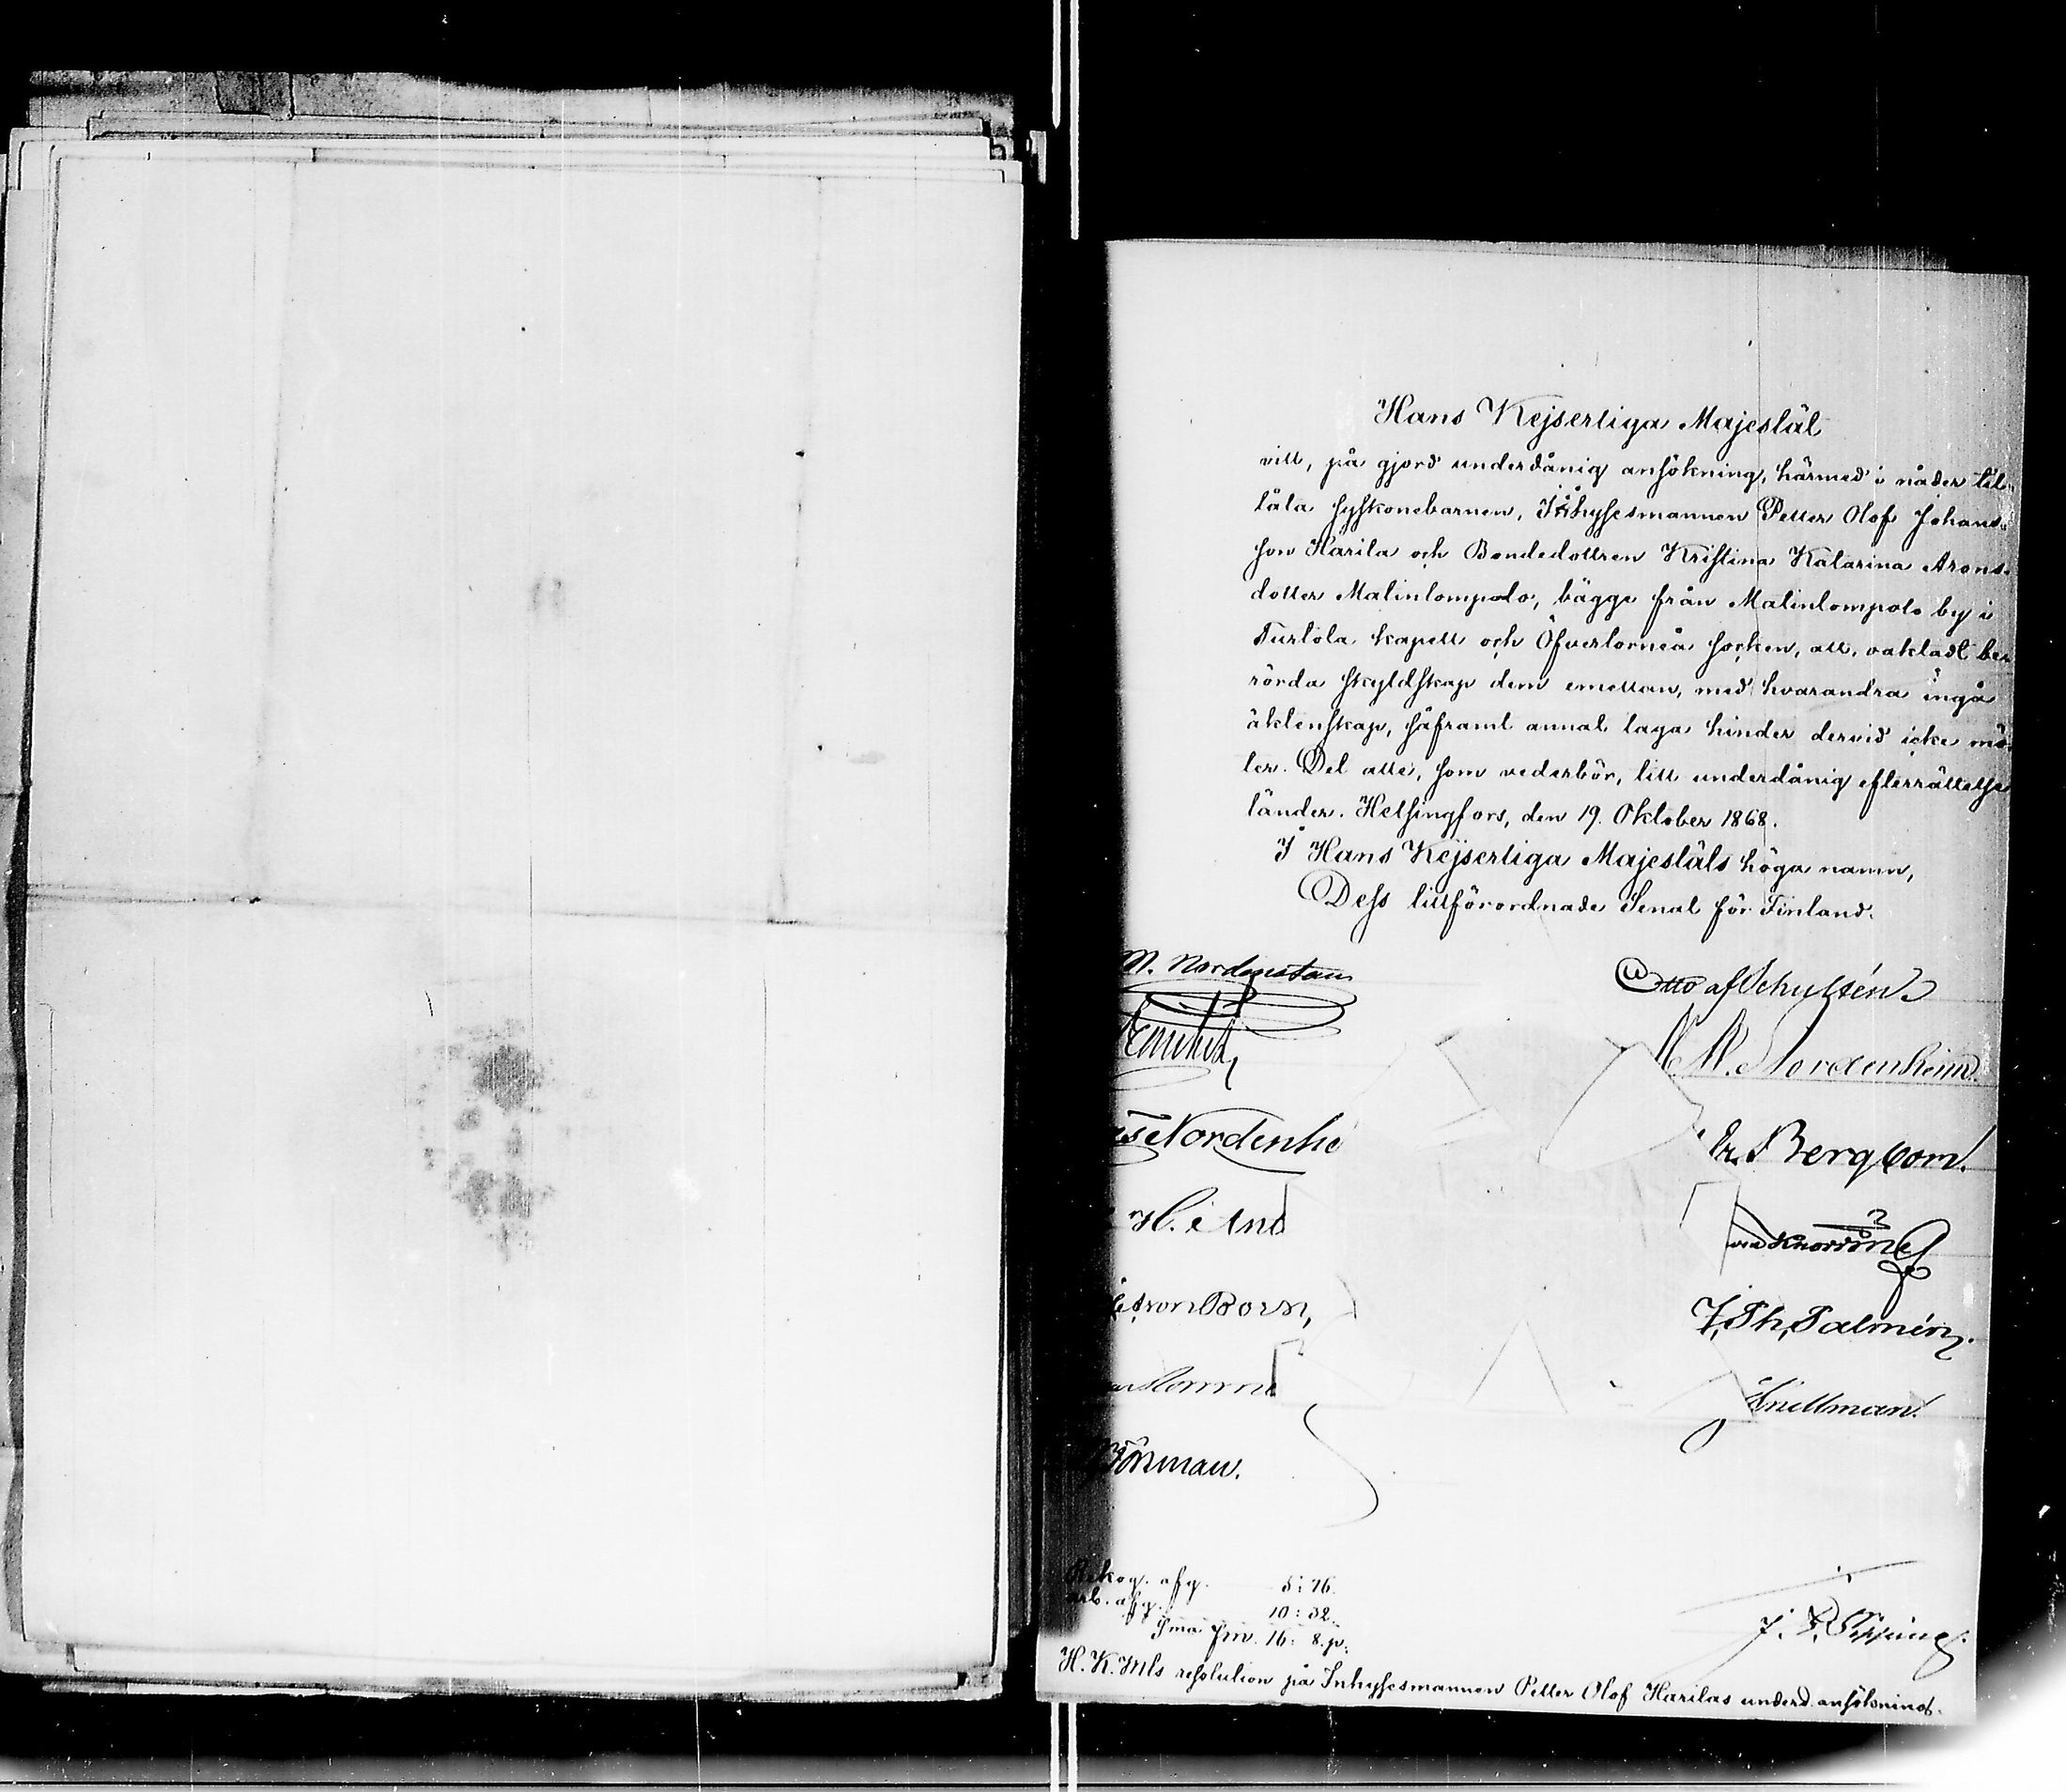 Hans Kejserliga Majestät
vill, på gjord underdånig ansökning, härmed i nåder till-
låta syskonebarnen, Inhysesmannen Petter Olof Johans-
son Harila och Bondedottren Kristina Katarina Arons-
dotter Matinlompolo, bägge från Matinlompolo by i
Turtola kapell och Öfvertorneå socken, att, oaktadt be-
rörda skyldskap dem emellan, med hvarandra ingå
äktenskap, såframt annat laga hinder dervid icke mö-
ter. Det alle, som vederbör, till underdånig efterrättelse
länder. Helsingfors, den 19. Oktober 1868.
I Hans Kejserliga Majestäts höga namn,
Dess tillförordnade Senat för Finland.
Otto af Schultén
Nordenheim.
Bergbom.
von Born,
von Knorring
J. Ph. Palmén.
Snellman.
Rekog. afg. 5: 76.
arb. afg. 10: 32.
S:ma Fm. 16: 8.p.
H. K. M:ts resolution på Inhysesmannen Petter Olof Harilas underd. ansökning.